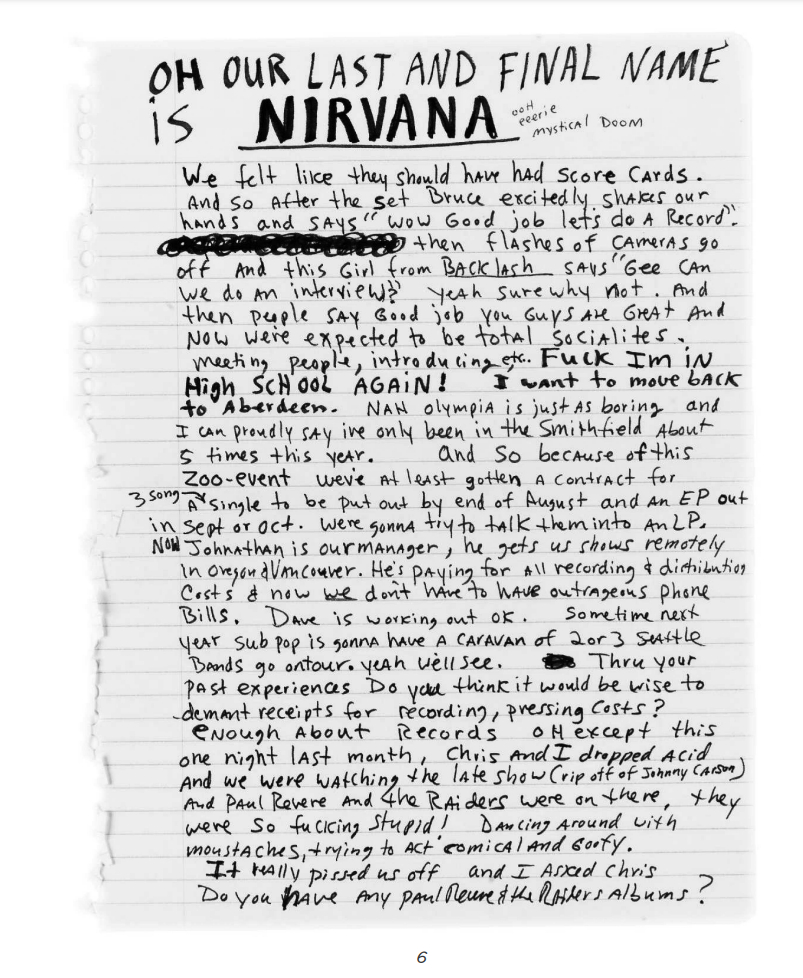 OH OUR LAST AND FINAL NAME
iS NIRVANA ooH eeerie mystical Doom
We felt like they should have had score cards.
And so after the set Bruce excitedly shakes our
hands and says "wow Good job let's do A Record".
then flashes of cameras go
off And this Girl from BACKlash says "Gee can
we do an interview?" yeah sure why not. And
then people say Good job you Guys are Great And
now were expected to be total socialites.
meeting people, introducing etc. Fuck Im in
High SCHOOL AGAIN! I want to move back
to Aberdeen. NAH olympia is just as boring and
I can proudly say ive only been in the Smithfield About
5 times this year. and so because of this
Zoo-event weve at least gotten a contract for
3 song A single to be put out by end of August and an EP out
in Sept or Oct. were gonna try to talk them into An LP.
Now Johnathan is our manager, he gets us shows remotely
in Oregon & Vancouver. He's paying for all recording & distribution
Costs & now we don't have to have outrageous phone
Bills. Dave is working out ok. Sometime next
year sub pop is gonna have a caravan of 2 or 3 Seattle
Bands go on tour. yeah we'll see. Thru your
past experiences Do you think it would be wise to
demant receipts for recording, pressing costs?
enough About Records oH except this
one night last month, Chris and I dropped acid
And we were watching the late show (rip off of Johnny Carson)
And Paul Revere and the Raiders were on there, they
were so fucking stupid! Dancing around with
moustaches, trying to act comical and goofy.
It really pissed us off and I Asked Chris
Do you have Any Paul Revere & the Raiders Albums?
6